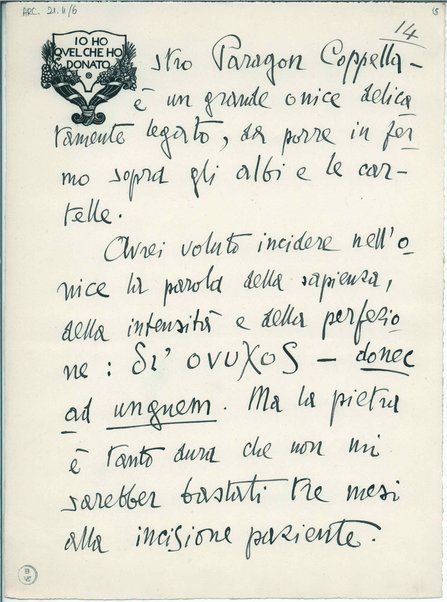 ARC. 21. II/6
15
14
IO HO
QVEL CHE HO
DONATO
stro Paragon Coppella -
è un grande onice delica
tamente legato, da porre in fer
mo sopra gli albi e le car-
telle.
Avrei voluto incidere nell'o
nice la parola della sapienza,
della intensità e della perfezio
ne : δι' ονυχος - donec
ad unguem. Ma la pietra
è tanto dura che non mi
sarebber bastati tre mesi
alla incisione paziente.